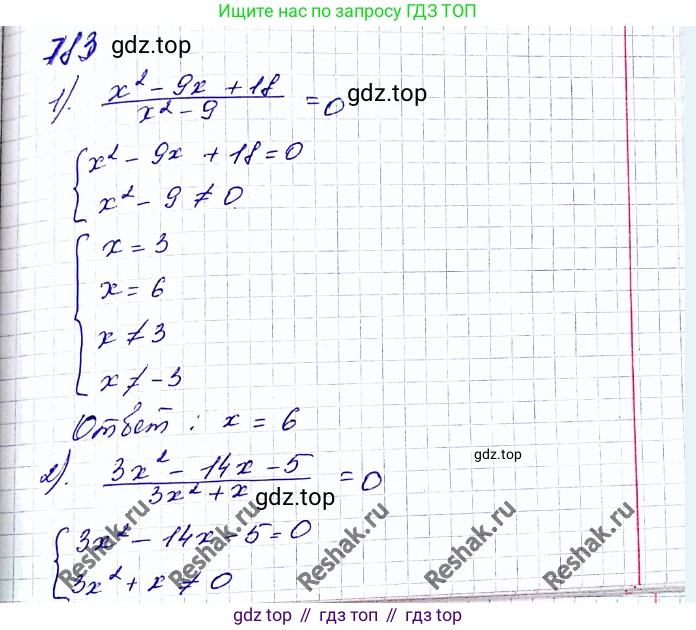 Ищите нас по запросу ГДЗ ТОП
783 gdz.top
1). x² - 9x + 18 / x² - 9 = 0 gdz.top
{ x² - 9x + 18 = 0
x² - 9 ≠ 0
{ x = 3
x = 6
x ≠ 3
x ≠ -3
Ответ : x = 6
2). 3x² - 14x - 5 / 3x² + x = 0 gdz.top
gdz.top
{ 3x² - 14x - 5 = 0
3x² + x ≠ 0
Reshak.ru Reshak.ru Reshak.ru Reshak.ru Reshak.ru
gdz top // гдз топ // гдз top